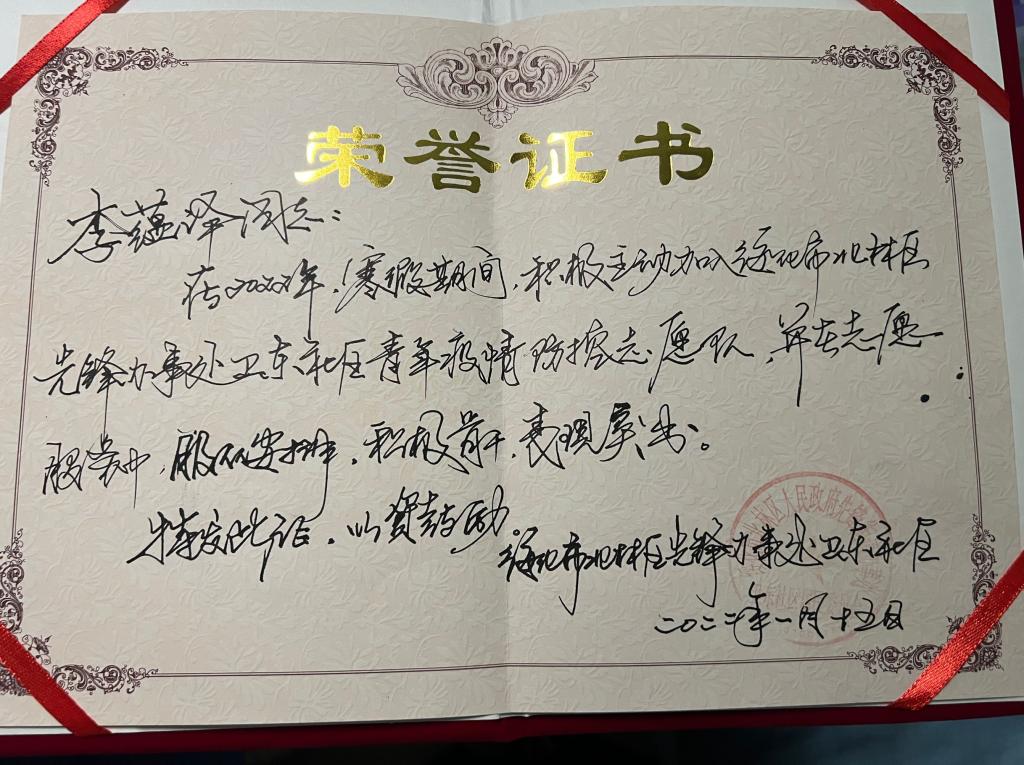 荣誉证书
李蕴泽同志：
在2022年，寒假期间，积极主动加入绥化市北林区
先锋办事处卫东社区青年疫情防控志愿队，并在志愿
服务中，服从安排，积极肯干，表现突出。
特发此证，以资鼓励。
绥化市北林区先锋办事处卫东社区
二〇二二年一月十五日
区人民政府